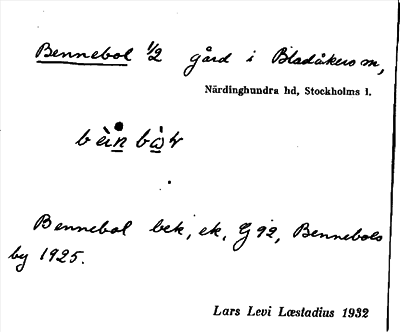 Bennebol 1/2 gård i Bladåkers sn,
Närdinghundra hd, Stockholms l.
Bennebol bek, ek, G 92, Bennebols
by 1925.
Lars Levi Læstadius 1932